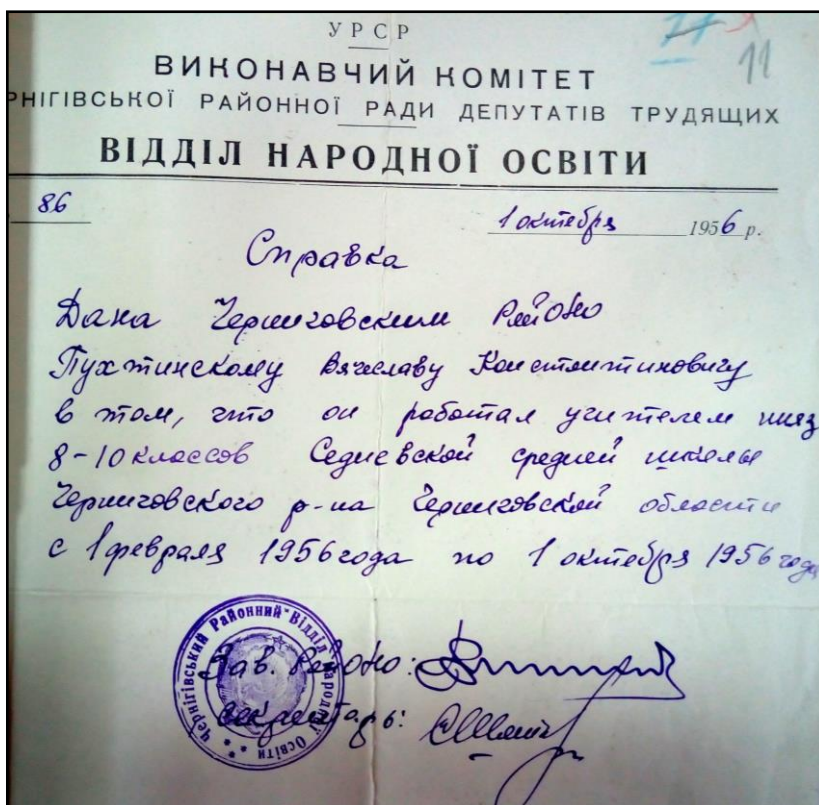 УРСР
11
ВИКОНАВЧИЙ КОМІТЕТ
РНІГІВСЬКОЇ РАЙОННОЇ РАДИ ДЕПУТАТІВ ТРУДЯЩИХ
ВІДДІЛ НАРОДНОЇ ОСВІТИ
86
1 октября 1956 р.
Справка
Дана Черниговским РайОНО
Пухтинскому Вячеславу Константиновичу
в том, что он работал учителем
8-10 классов Седневской средней школы
Черниговского р-на Черниговской области
с 1 февраля 1956 года по 1 октября 1956 года
Зав. РайОНО:
секретарь:
Чернігівський Районний Відділ Народної Освіти